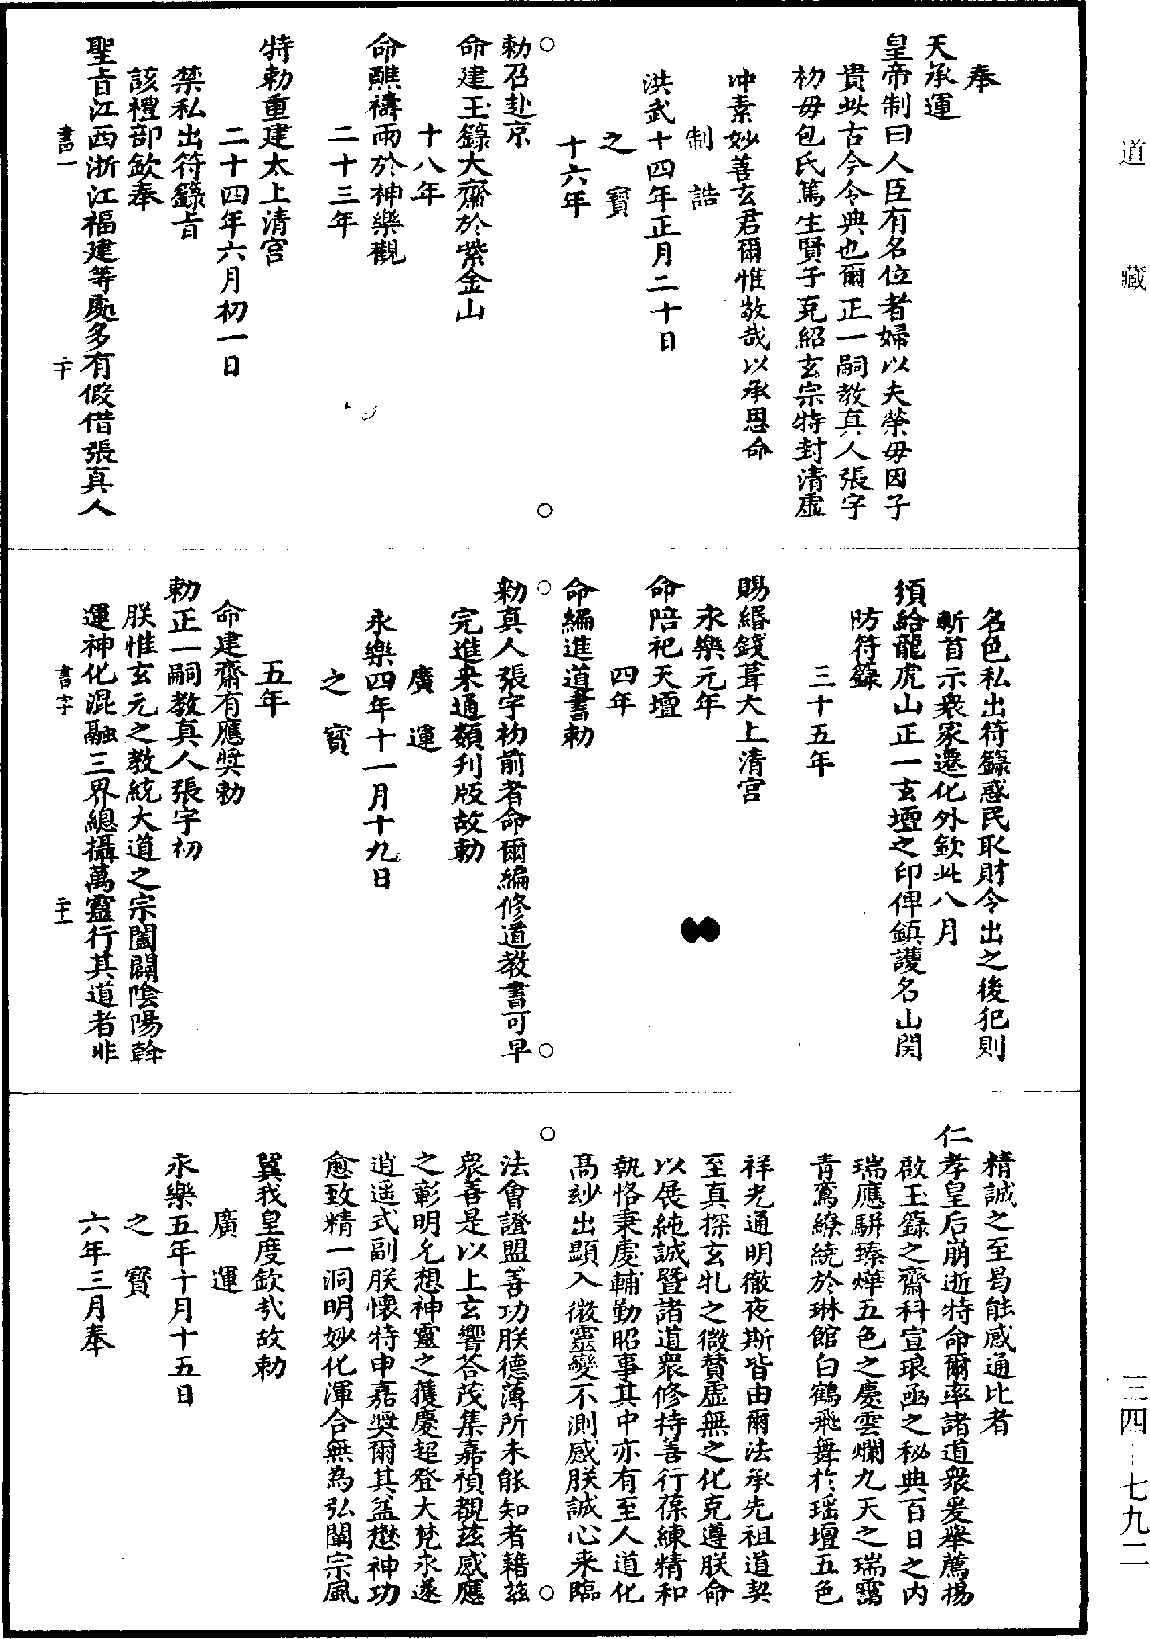 道藏
奉
天承運
皇帝制曰人臣有名位者婦以夫榮毋因子
貴此古今令典也爾正一嗣教真人張宇
初毋包氏篤生賢子克紹玄宗特封清虛
冲素妙善玄君爾惟敬哉以承恩命
制誥
洪武十四年正月二十日
之寳
十六年
○
○
勑召赴京
命建玉籙大齋於紫金山
十八年
命醮禱雨於神樂觀
二十三年
特勑重建太上清宮
二十四年六月初一日
禁私出符籙旨
該禮部欽奉
聖旨江西浙江福建等處多有假借張真人
書一
二十
名色私出符籙惑民取財今出之後犯則
斬首示衆家遷化外欽此八月
須給龍虎山正一玄壇之印俾鎮護名山関
防符籙
三十五年
賜緡錢葺大上清宮
永樂元年
命陪祀天壇
四年
命編進道書勑
○
○
勑真人張宇初前者命爾編修道教書可早
完進来通類刊版故勑
廣運
永樂四年十一月十九日
之寳
五年
命建齋有應奬勑
勑正一嗣教真人張宇初
朕惟玄元之教統大道之宗闔闢陰陽斡
運神化混融三界總攝萬靈行其道者非
書字
二十一
精誠之至曷能感通比者
仁孝皇后崩逝特命爾率諸道衆爰舉薦揚
啟玉籙之齋科宣琅函之秘典百日之内
瑞應駢臻燁五色之慶雲爛九天之瑞靄
青鸞繚繞於琳館白鶴飛舞於瑶壇五色
祥光通明徹夜斯皆由爾法承先祖道契
至真探玄牝之微賛虛無之化克遵朕命
以展純誠暨諸道衆修持善行葆練精和
執恪秉虔輔勤昭事其中亦有至人道化
高玅出顯入微靈變不測感朕誠心来臨
○
○
法會證盟善功朕德薄所未能知者籍兹
衆善是以上玄響答茂集嘉禎覩兹感應
之彰明允想神靈之獲慶超登大梵永遂
逍遥式副朕懷特申嘉奬爾其益懋神功
愈致精一洞明妙化渾合無為弘闡宗風
翼我皇度欽哉故勑
廣運
永樂五年十月十五日
之寳
六年三月奉
三四—七九二